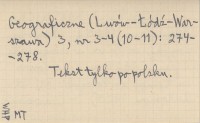 Geograficzne (Lwów-Łódź-War-
szawa) 3, nr 3-4 (10-11): 274-
-278.
Tekst tylko po polsku.
MT